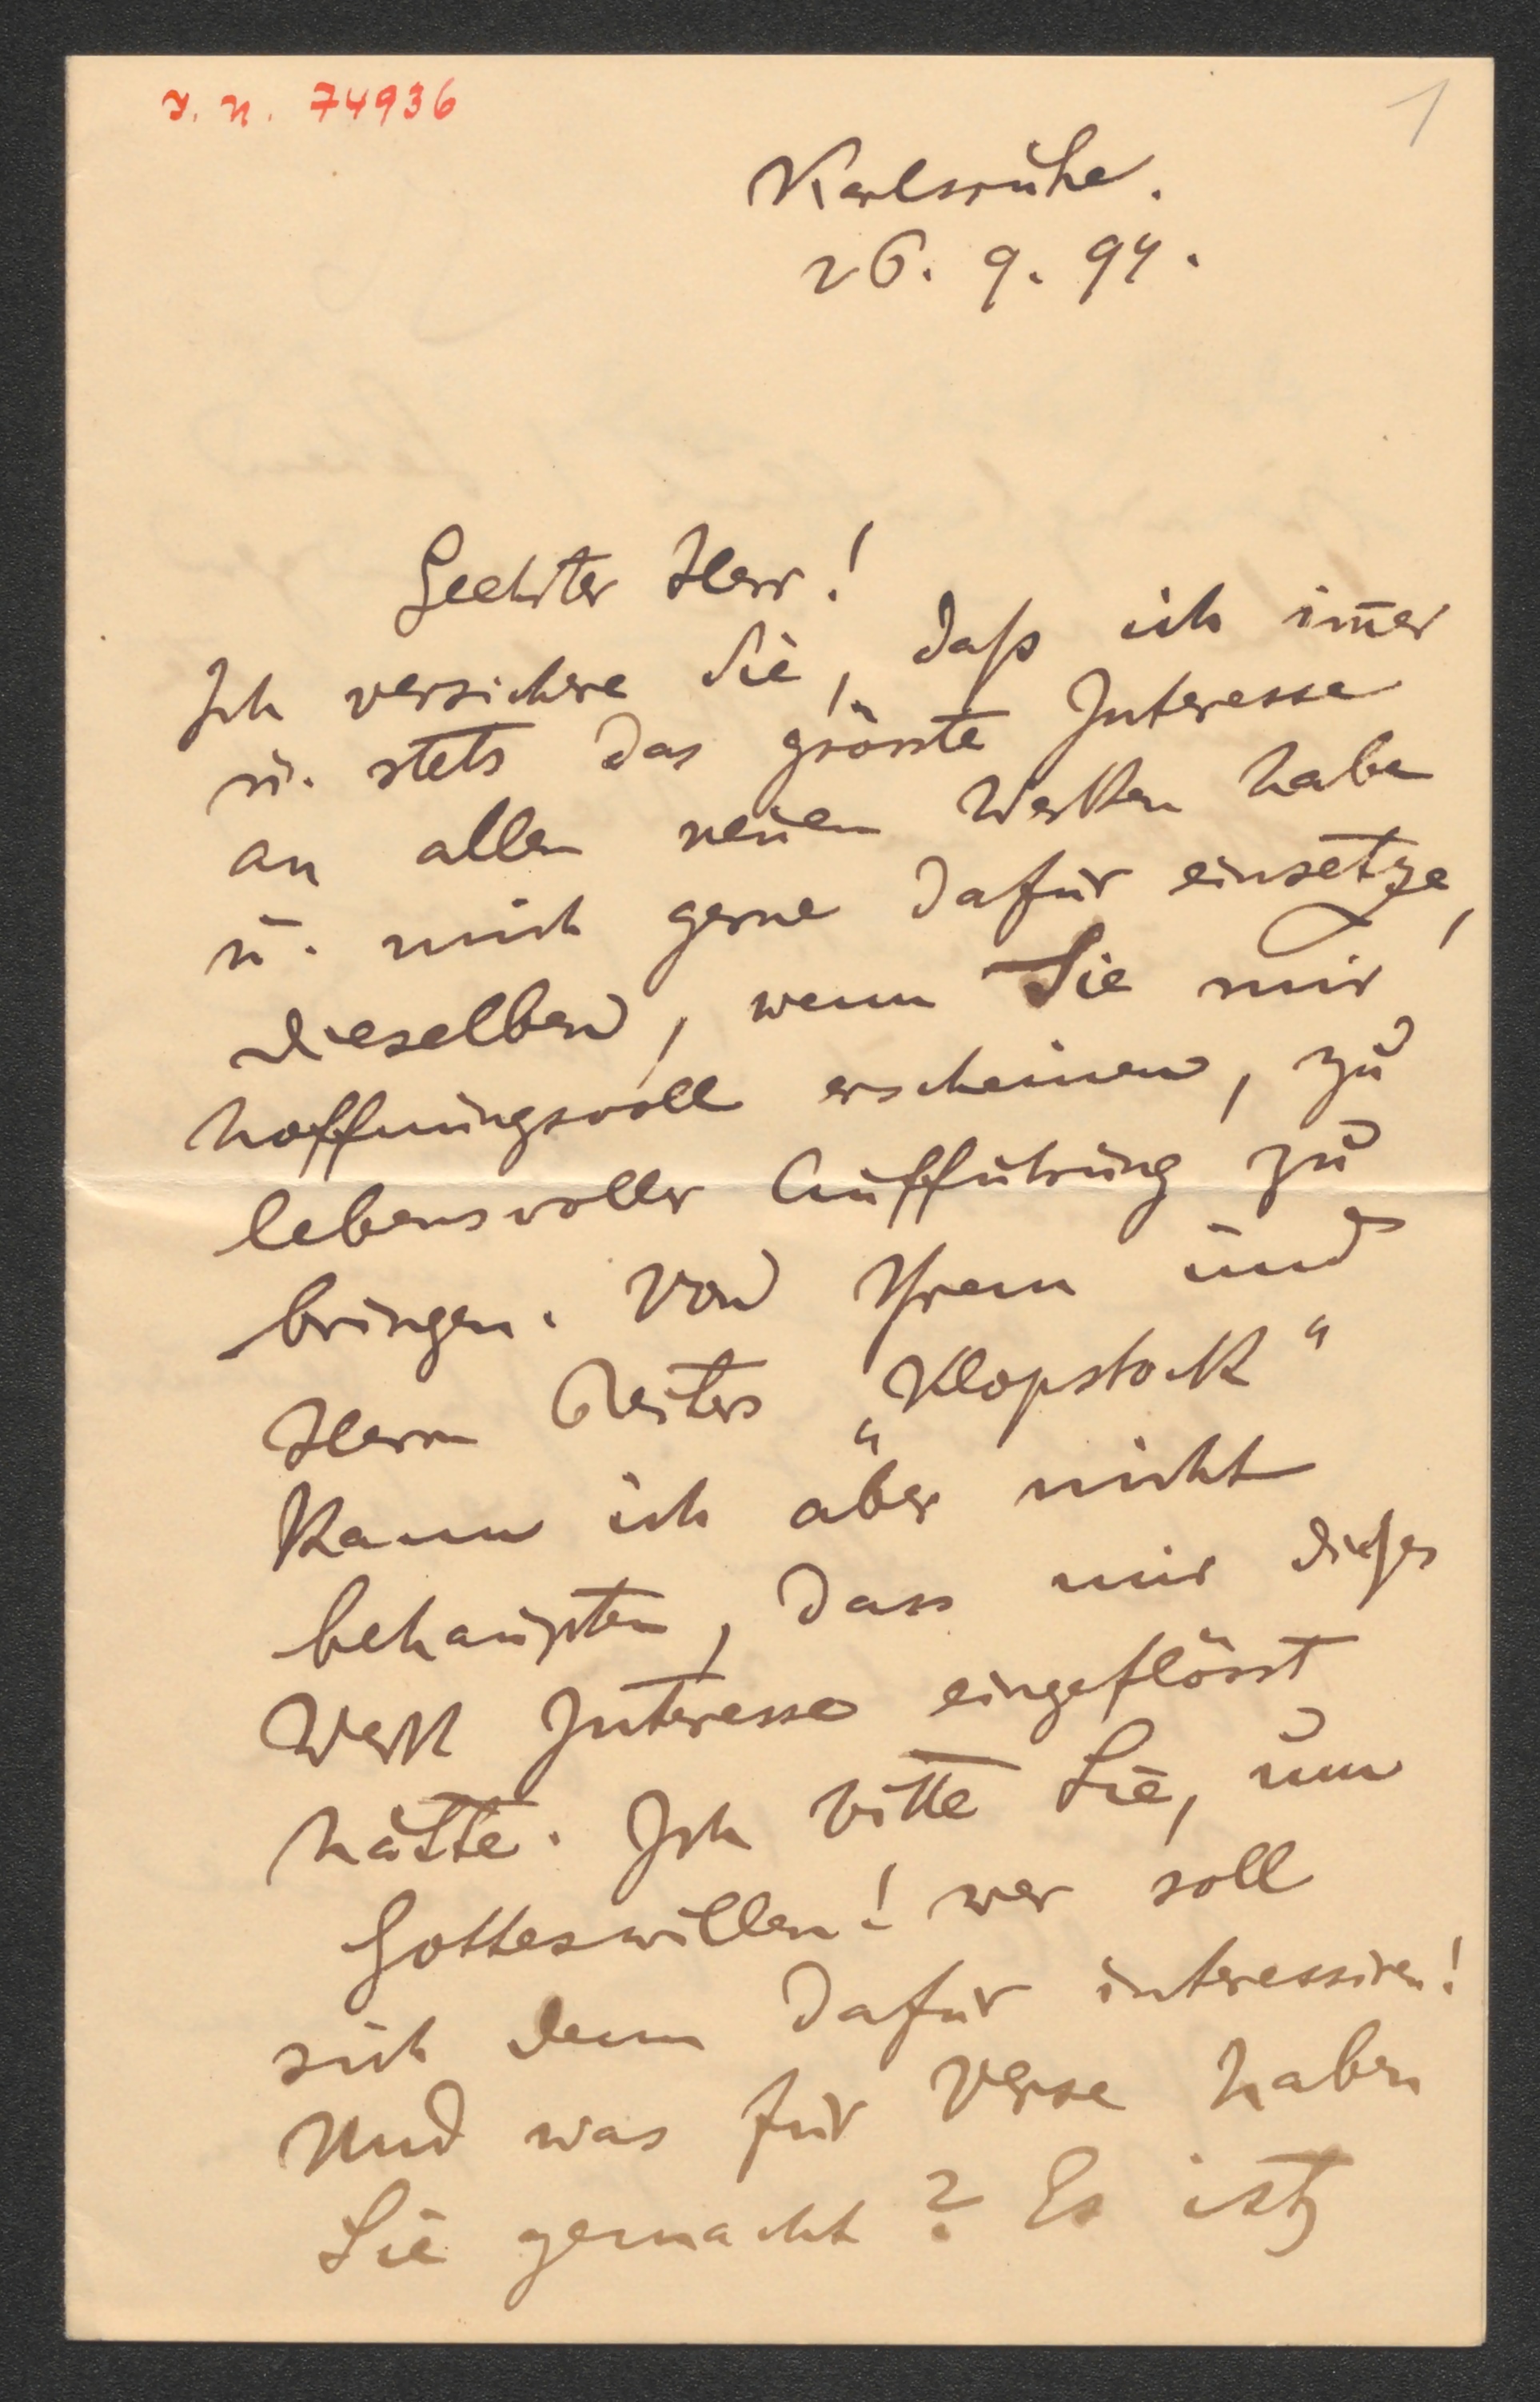 I. N. 74936
1
Karlsruhe.
26. 9. 94.
Geehrter Herr!
Ich versichere Sie, daß ich im̅er
u. stets das grösste Interesse
an allen neuen Werken habe
u. mich gerne dafür einsetze,
dieselben, wenn Sie mir
hoffnungsvoll erscheinen, zu
lebensvoller Aufführung zu
bringen. Von Ihrem und
Herrn Reiters „Klopstock“
kann ich aber nicht
behaupten, dass mir dieses
Werk Interesse eingeflösst
hätte. Ich bitte Sie, um
Gotteswillen! wer soll
sich denn dafür interessiren!
Und was für Verse haben
Sie gemacht? Es ist